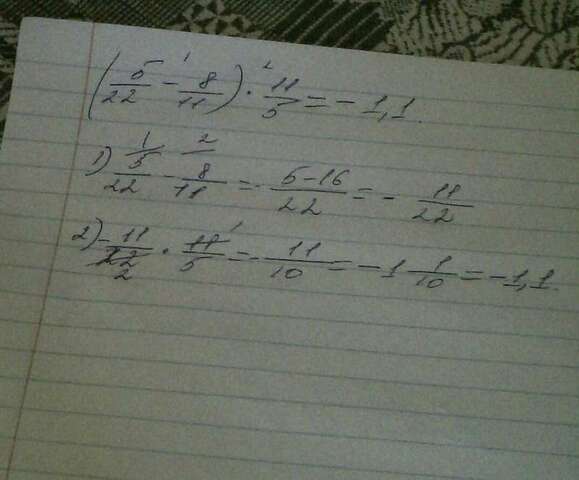 (5/22 - 8/11) · 11/5 = - 1,1.
1) 5/22 - 8/11 = 5-16/22 = - 11/22
2) - 11/22 · 11/5 = - 11/10 = - 1 1/10 = - 1,1.